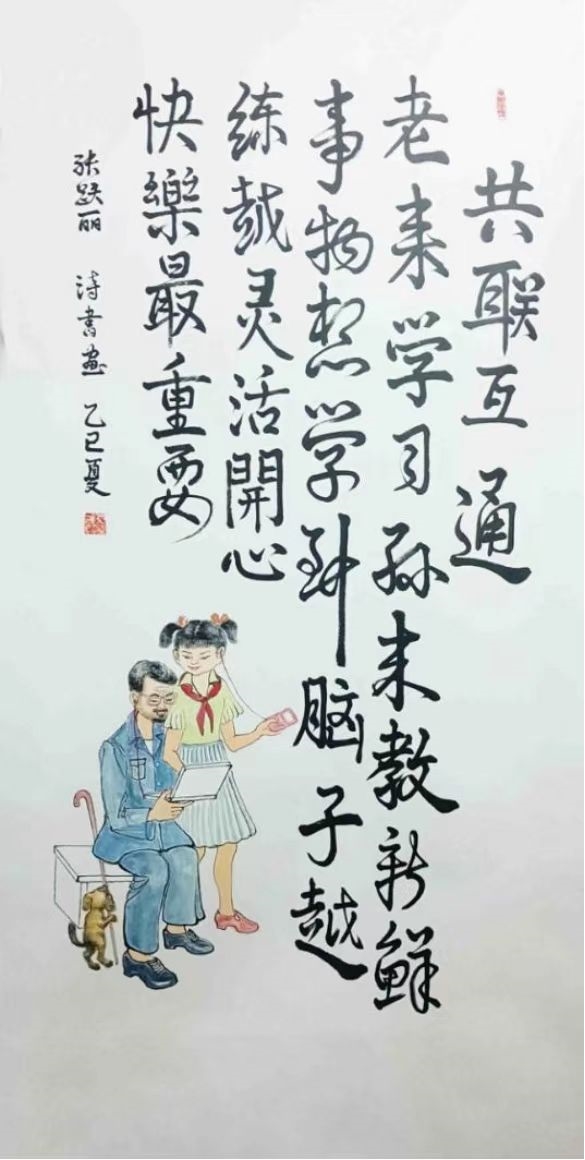 共联互通
老来学习孙来教新鲜
事物想学到脑子越
练越灵活開心
快樂最重要
张跃丽 诗書画 乙巳夏